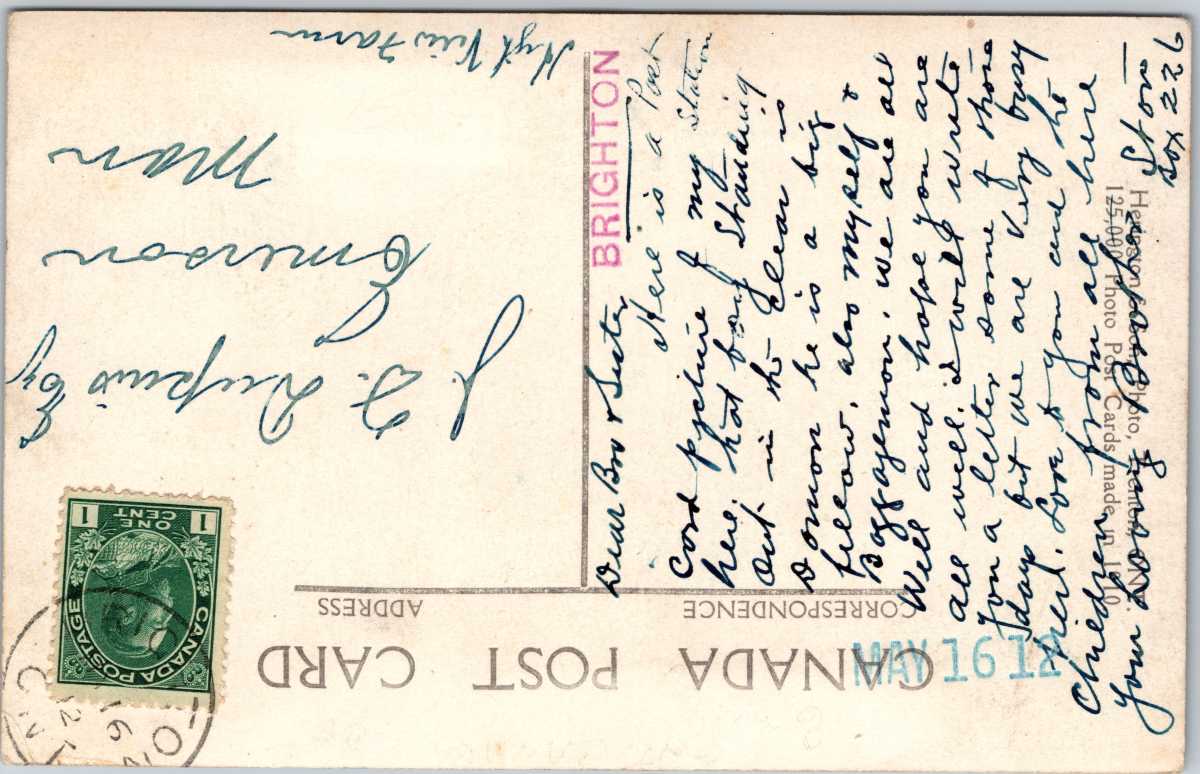 CANADA POST CARD
CORRESPONDENCE
ADDRESS
MAY 16 12
BRIGHTON
CANADA POSTAGE
1 ONE CENT 1
J. F.
Emerson
Man
View Farm
Dear Bro & Sister
Here is a Post
Card picture of my Station
here, that being Standing
Out in the clear is
Domon he is a big
fellow, also myself &
Baggagemon, we are all
Well and hope you are
all well. I will write
you a letter some of those
days but we are very busy
here. Love to you and the
Children from all here
Your Loving Brother
Ston
Box 226
Photo, Trenton, ONT.
125,000 Photo Post Cards made in 1910